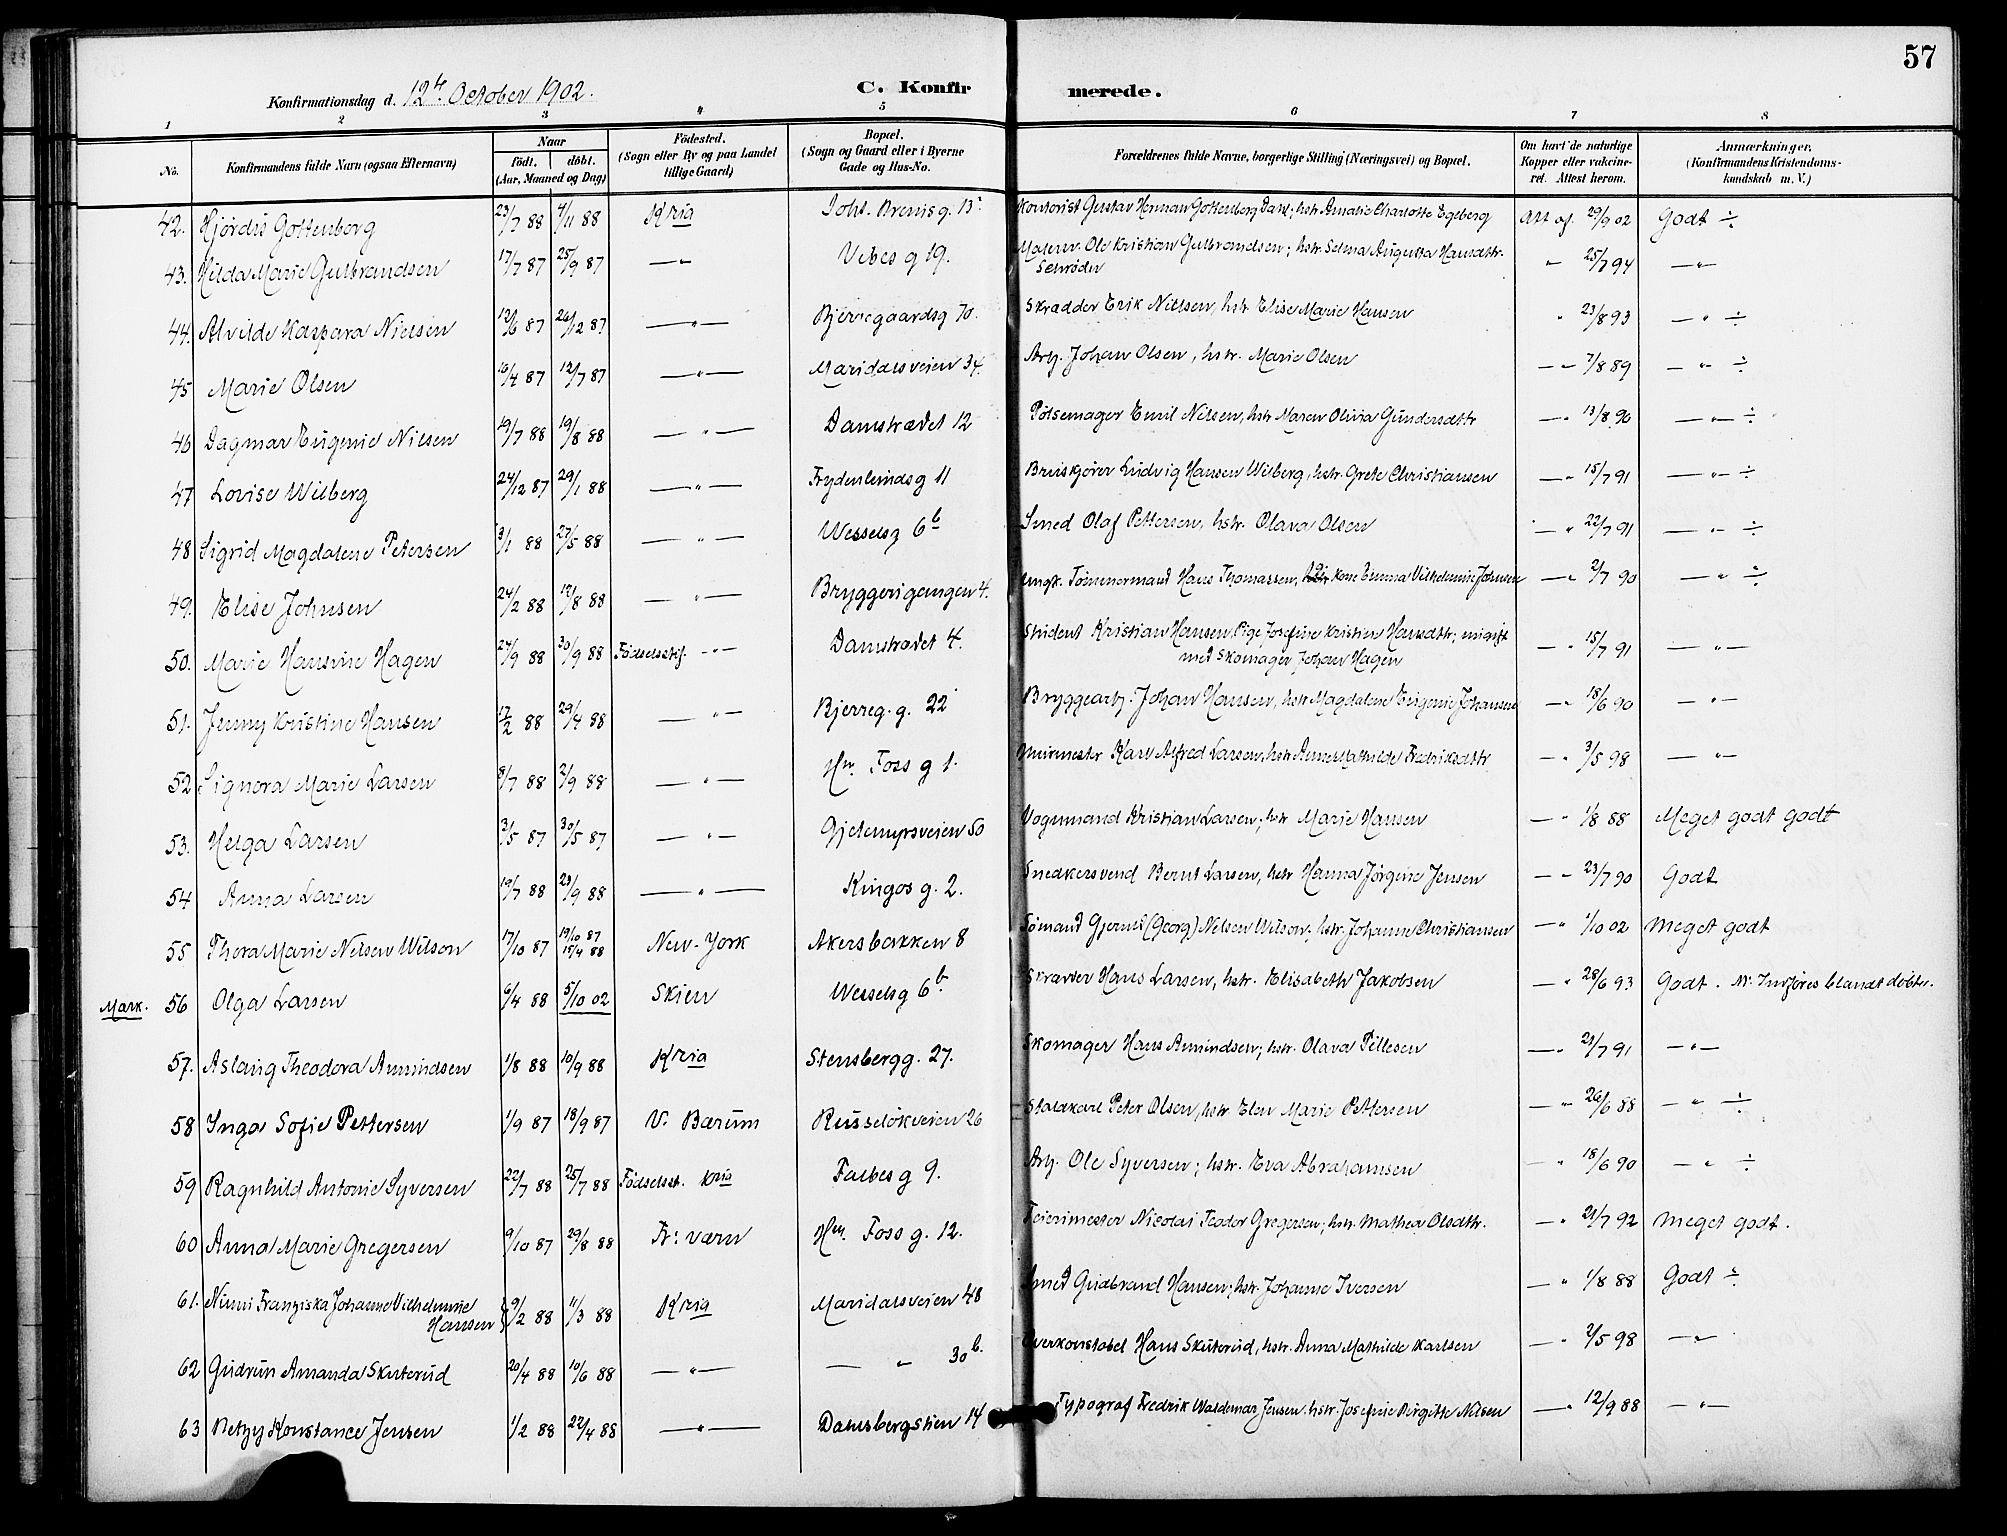 57
Konfirmationsdag d. 12te October 1902. C. Konfirmerede.
1 2 3 4 5 6 7 8
No. | Konfirmandens fulde Navn (ogsaa Efternavn) | Naar født. døbt. (Aar, Maaned og Dag) | Fødested. (Sogn eller By og paa Landet tillige Gaard) | Bopæl. (Sogn og Gaard eller i Byerne Gade og Hus-No. | Forældrenes fulde Navne, borgerlige Stilling (Næringsvei) og Bopæl. | Om havt de naturlige Kopper eller vakcineret. Attest herom. | Anmærkninger. (Konfirmandens Kristendomskundskab m. V.)
42. Hjördis Gottenborg 23/7 88 4/11 88 Kria Joh. Bruns g. 13 Kontorist Gustav Herman Gottenborg Dahl; hstr. Amalie Charlotte Egeberg Att af 29/9 02 Godt ÷
43. Hilda Marie Gulbrandsen 17/7 87 25/9 87 —"— Vibes g 19. Maler Ole Kristian Gulbrandsen; hstr. Selma Augusta Hansdtr. Schrøder " 25/7 94 —"—
44. Alvilde Kaspara Nielsen 12/6 87 26/12 87 —"— Bjerregaardsg 70. Skrædder Erik Nielsen, hstr. Elise Marie Hansen " 23/8 93 —"— ÷
45 Marie Olsen 16/4 87 12/7 87 —"— Maridalsveien 34. Arb. Johan Olsen, hstr. Marie Olsen —"— 7/8 89 —"— ÷
46 Dagmar Eugenie Nilsen 19/7 88 19/8 88 —"— Damstrædet 12 Pølsemager Emil Nilsen, hstr Maren Olivia Gundersdtr —" 13/8 90 —"— ÷
47 Lovise Wilberg 24/12 87 29/1 88 —"— Frydenlundsg 11 Bruiskjører Ludvig Hansen Wilberg, hstr. Grete Christiansen —" 15/7 91 —"— ÷
48 Sigrid Magdalene Petersen 3/1 88 27/5 88 —"— Wesselsg 6b Smed Olaf Pettersen, hstr. Olava Olsen —" 22/7 91 —"— ÷
49. Elise Johnsen 24/2 88 12/8 88 —"— Bryggerigangen 4. Ungk. Tømmermand Hans Thomassen, Kone Emma Vilhelmine Johnsen —" 2/7 90 —"— ÷
50. Marie Hansine Hagen 24/9 88 30/9 88 Fødselsstif. —"— Damstrædet 4. Student Kristian Hansen, Pige Josefine Kristine Hansdtr; nu gift med Skomager Johan Hagen —" 15/7 91 —"—
51. Jenny Kristine Hansen 17/2 88 29/4 88 —"— Bjerreg. g. 22 Bryggearb. Johan Hansen, hstr Magdalene Eugenie Johansen —" 18/6 90 —"—
52 Signora Marie Larsen 8/7 88 2/9 88 —"— Hm. Foss g 1. Murmester Karl Alfred Larsen, hstr Anne Mathilde Fredriksdtr —" 3/5 98 —"—
53. Helga Larsen 3/5 87 30/5 87 —"— Gjetemyrsveien 50 Vognmand Kristian Larsen; hstr Marie Hansen —" 1/8 88 Meget godt godt
54 Anna Larsen 19/7 88 23/9 88 —"— Kingos g. 2. Snedkersvend Bernt Larsen, hstr Hanna Jørgine Jensen —" 23/7 90 Godt
55 Thora Marie Nelsen Wilson 17/10 87 19/10 87 15/4 88 New-York Akersbakken 8 Sømand Gjerner (Georg) Nelsen Wilson; hstr. Johanne Christiansen —" 1/10 02 Meget godt
Mark. 56 Olga Larsen 6/4 88 5/10 02 Skien Wesselsg 6b. Skrædder Hans Larsen, hstr. Elisabeth Jakobsen —" 28/6 93 Godt. Indføres blandt døbte.
57. Aslaug Theodora Amundsen 1/8 88 10/9 88 Kria Stensbergg. 27. Skomager Hans Amundsen; hstr. Olava Pettesen —" 21/7 91 —"—
58 Inga Sofie Pettersen 1/9 87 18/9 87 V. Bærum Russeløkveien 26 Staldkarl Peter Olsen, hstr. Elen Marie Pettersen —" 26/6 88 —"— ÷
59 Ragnhild Antonie Syversen 22/7 88 25/7 88 Fødselsst. Kria Falbes g 9. Arb. Ole Syversen; hstr. Eva Abrahamsen —" 18/6 90 —"— ÷
60 Anna Marie Gregersen 9/10 87 29/8 88 Fr: værn Hm. Foss g. 12. Feiermester Nicolai Teodor Gregersen; hstr. Mathea Olsdtr. —" 21/7 92 Meget godt.
61. Ninni Franziska Johanne Vilhelmine Hansen 9/2 88 11/3 88 Kria Maridalsveien 48 Smed Gudbrand Hansen; hstr. Johanne Iversen —" 1/8 88 Godt ÷
62 Gudrun Amanda Skuterud 20/4 88 10/6 88 —"— — " 30b. Overkonstabel Hans Skuterud, hstr. Anna Mathilde Karlsen —" 2/5 98 —"—
63 Betzy Konstance Jensen 1/2 88 22/4 88 —"— Damsbergstien 14 Typograf Fredrik Waldemar Jensen. hstr. Josefine Birgitte Nilsen —" 12/9 88 —"—